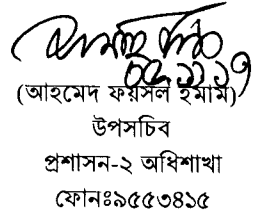 (আহমেদ ফয়সল ইমাম)
উপসচিব
প্রশাসন-২ অধিশাখা
ফোনঃ৯৫৫৩৪১৫